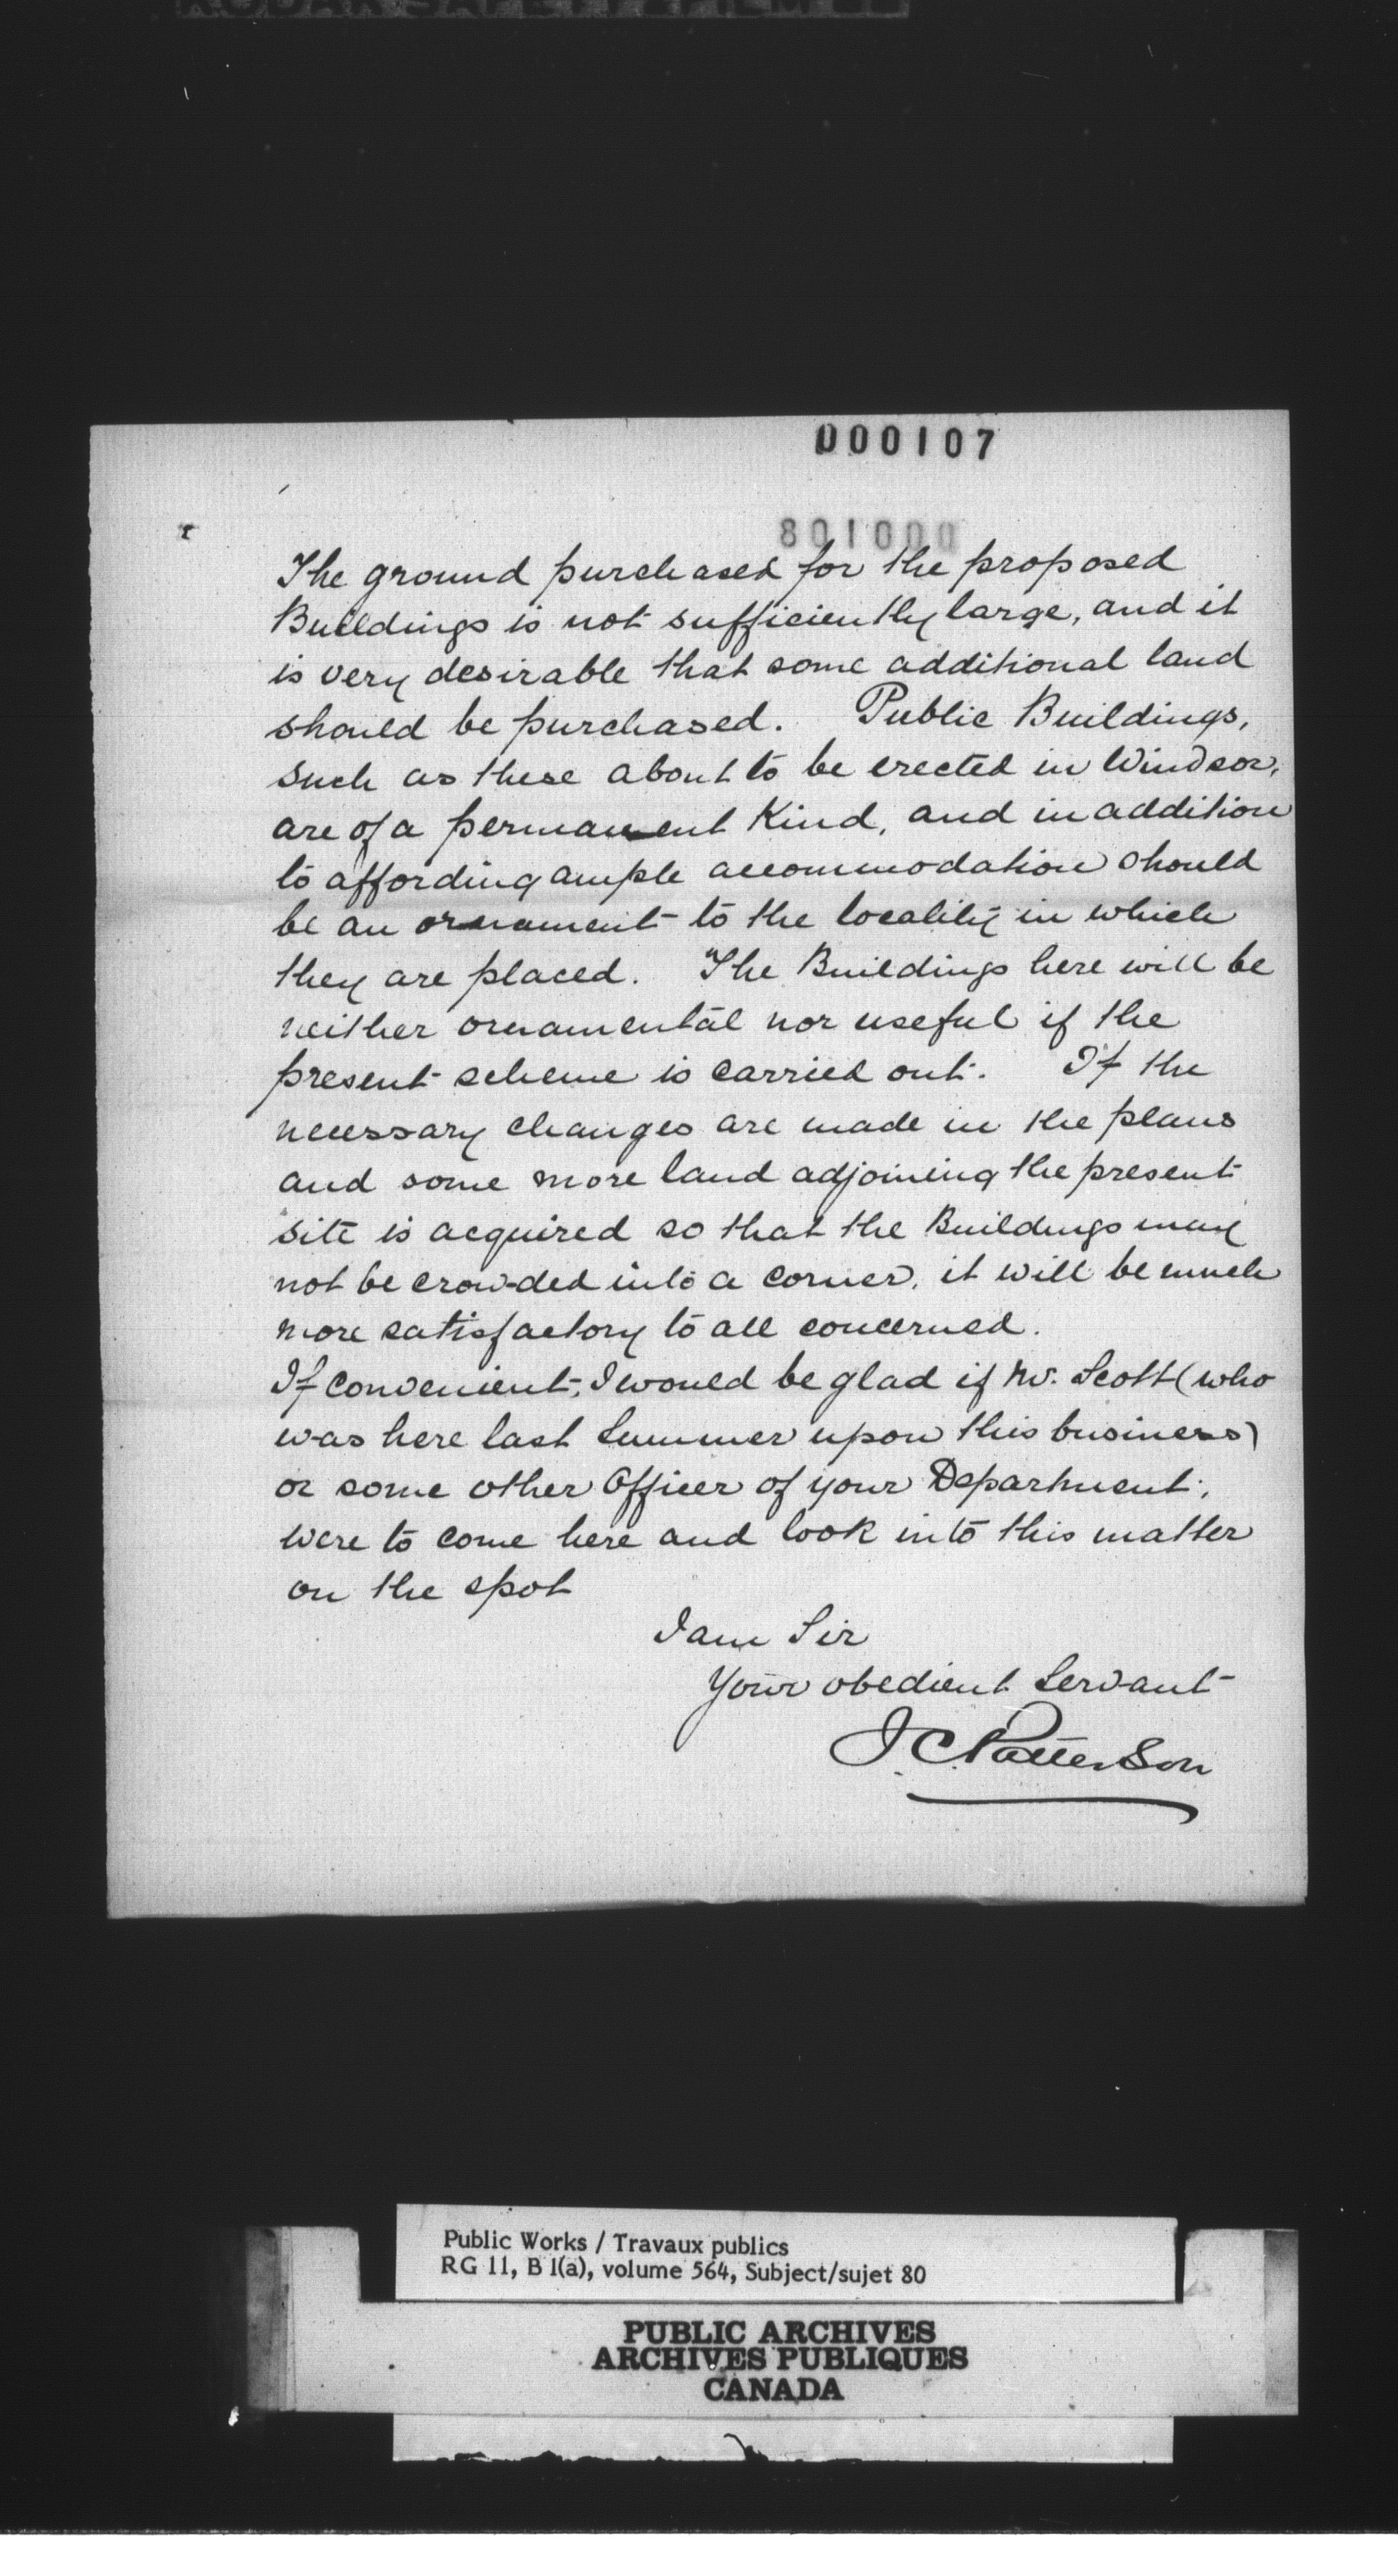 KODAK SAFETY FILM
000107
801000
The ground purchased for the proposed
Buildings is not sufficiently large, and it
is very desirable that some additional land
should be purchased. Public Buildings,
such as these about to be erected in Windsor,
are of a permanent Kind, and in addition
to affording ample accommodation should
be an ornament to the locality in which
they are placed. The Buildings here will be
neither ornamental nor useful if the
present scheme is carried out. If the
necessary changes are made in the plans
and some more land adjoining the present
site is acquired so that the Buildings may
not be crowded into a corner, it will be much
more satisfactory to all concerned.
If convenient, I would be glad if Mr. Scott (who
was here last Summer upon this business)
or some other Officer of your Department,
were to come here and look into this matter
on the spot
I am Sir
Your obedient Servant
J. C. Patterson
Public Works / Travaux publics
RG 11, B 1(a), volume 564, Subject/sujet 80
PUBLIC ARCHIVES
ARCHIVES PUBLIQUES
CANADA